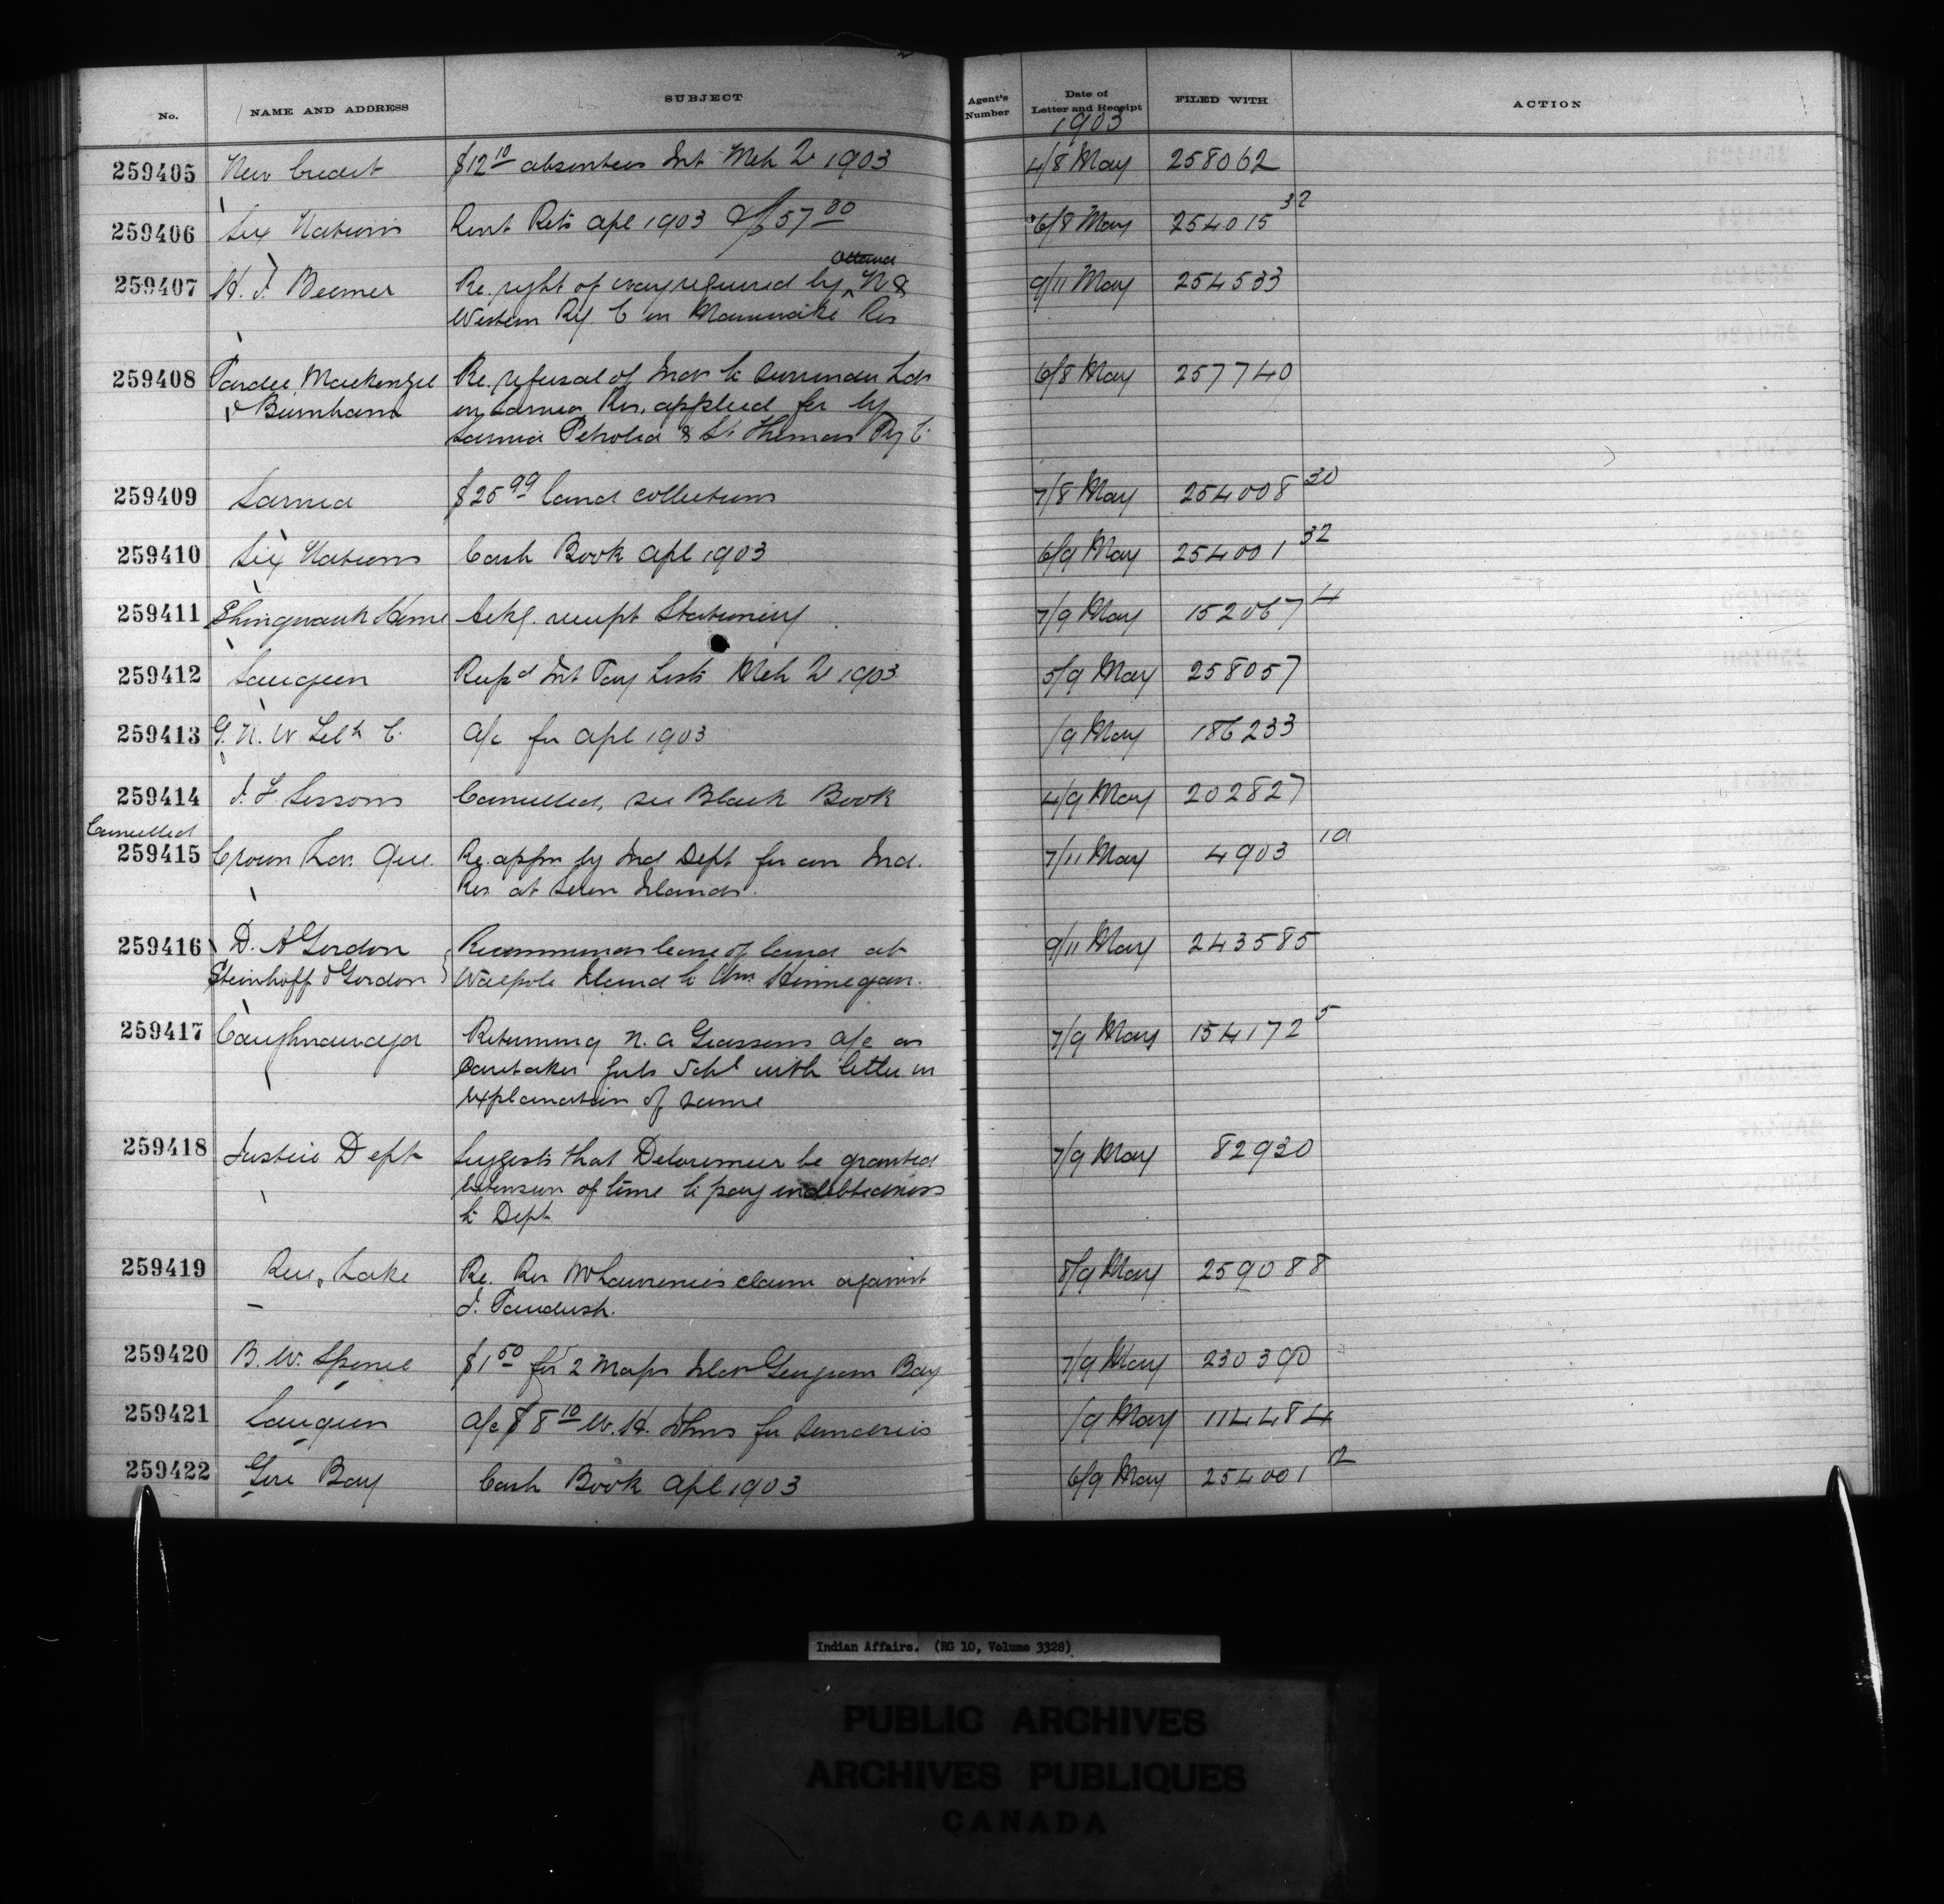 No. NAME AND ADDRESS SUBJECT Agent's Number Date of Letter and Receipt FILED WITH ACTION
1903
259405 New Credit $12 10 absentees Int Mch 1903 4/8 May 258062
259406 Six Nations Rent Rets Apl 1903 $57 00 6/8 May 254015 32
Ottawa
259407 H. J. Beemer Re. right of way required by N &
Western Ry. C in Maniwaki Res 9/11 May 254533
259408 Pardee Mackenzie Re. refusal of Inds to surrender Lds 6/8 May 257740
& Burnham on Sarnia Res. applied for by
Sarnia Petrolia & St. Thomas Ry C.
259409 Sarnia $25 99 land collections 7/8 May 254008 30
259410 Six Nations Cash Book Apl 1903 6/9 May 254001 32
259411 Shingwauk Home Ackg. receipt Stationery 7/9 May 152067 4
259412 Saugeen Int Pay Lists Mch 1903 5/9 May 258057
259413 G. N. W Tel C. a/c for Apl 1903 /9 May 186233
259414 J. F. Sissons Cancelled, see Black Book 4/9 May 202827
Cancelled
259415 Crown Lds. Que. Re. appn by Ind Dept for an Ind. 7/11 May 4903 1a
Res. at Seven Islands.
259416 D. A Gordon Recommends lease of land at 9/11 May 243585
Steinhoff & Gordon Walpole Island to Wm. Hinnegan.
259417 Caughnawaga Returning N. A a/c as 7/9 May 154172 5
Caretaker Girls Schl with letter in
explanation of same
259418 Justice Dept Suggests that Delorimier be granted 7/9 May 82930
extension of time to pay indebtedness
to Dept
259419 Rice Lake Re. Rev McLawrence's claim against 8/9 May 259088
J. Paudash.
259420 B. W. Spence $1 50 for 2 Maps Islds Georgian Bay 7/9 May 230390
259421 Saugeen a/c $8 10 W. H. Johns for Sunderies /9 May 114484
259422 Gore Bay Cash Book Apl 1903 6/9 May 254001 12
Indian Affairs. (RG 10, Volume 3328)
PUBLIC ARCHIVES
ARCHIVES PUBLIQUES
CANADA